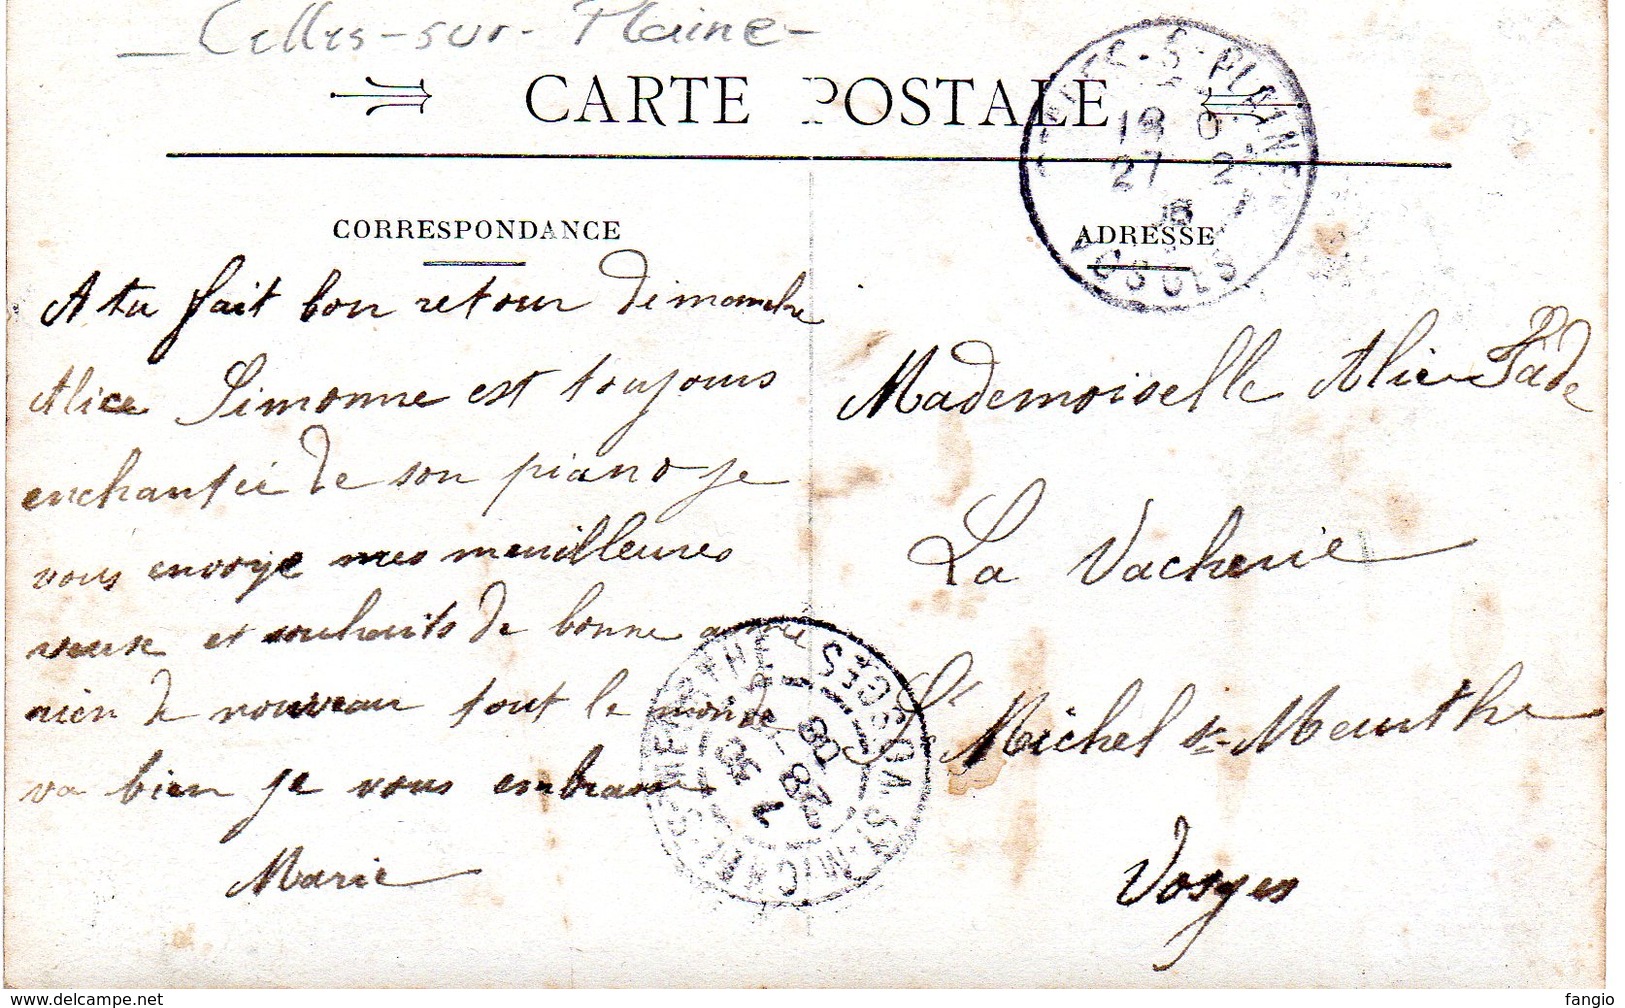 Celles-sur-Plaine-
CARTE POSTALE
CORRESPONDANCE
A tu fait bon retour dimanche
Alice Simonne est toujours
enchantée de son piano je
vous envoye mes meuilleures
veux et souhaits de bonne année
rien de nouveau tout le monde
va bien je vous embrasse
Marie
ADRESSE
Mademoiselle Alice
La Vacherie
St Michel s-Meurthe
Vosges
27 2
VOSGES
28
08
www.delcampe.net
fangio